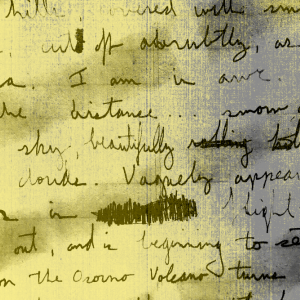 hills, covered with
, cut off abruptly, as
a. I am in awe.
the distance... snow,
sky, beautifully
clouds. Vaguely appear
in light
out, and is beginning to
on the Osorno Volcano turns